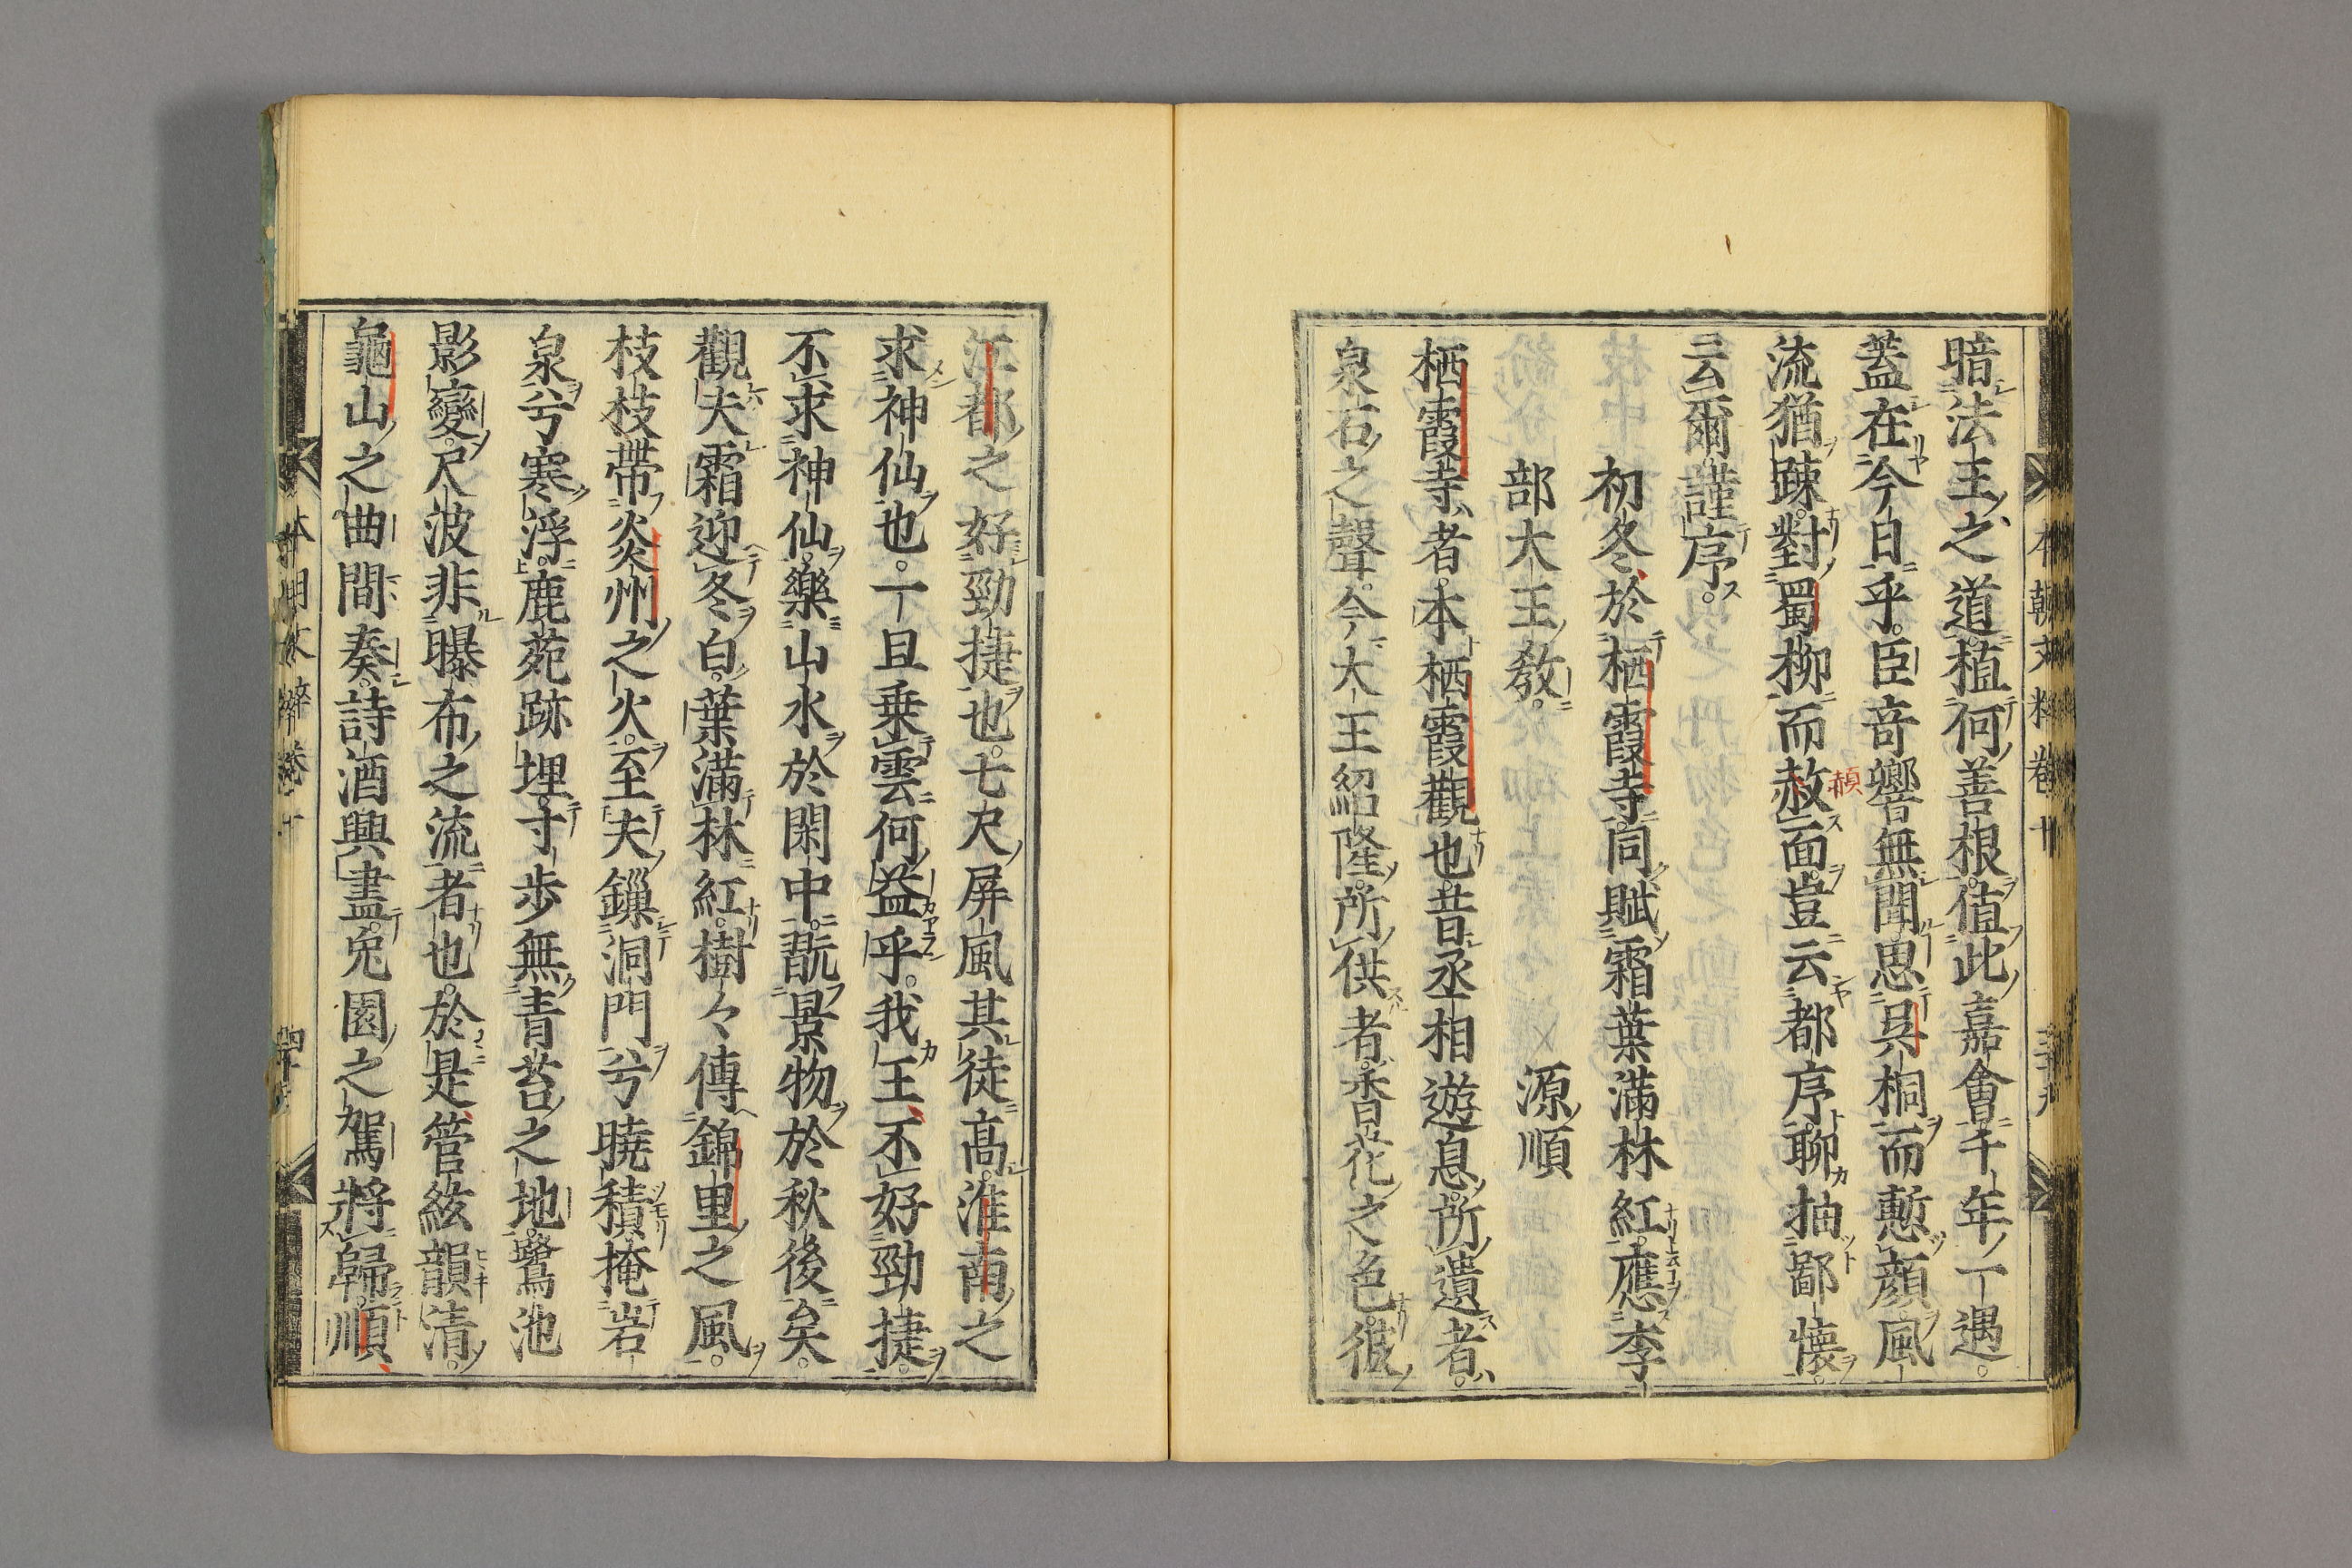 本朝文粹卷十
三十九
暗法王之道植何善根値此嘉會千年一遇。
蓋在今日乎。臣竒響無聞。思呉桐而慙顔風
流猶踈。對蜀柳而赦面。豈云都序聊抽鄙懷。
云爾謹序。
頳
初冬於栖霞寺同賦霜葉滿林紅應李
部大王教。
源順
栖霞寺者。本栖霞觀也。昔丞相遊息所遺者。
泉石之聲。今大王紹隆所供者。香花之色。彼
江都之好勁捷也。七尺屏風其徒高。淮南之
求神仙也。一旦乗雲何益乎。我王不好勁捷。
不求神仙。樂山水於閑中。翫景物於秋後矣。
觀夫霜迎冬白。葉滿林紅。樹々傳錦里之風。
枝枝帶炎州之火。至夫鏁洞門兮曉積掩岩
泉兮寒浮。鹿苑跡埋。寸歩無青苔之地。鷺池
影變。尺波非曝布之流者也。於是管絃韻清。
龜山之曲間奏。詩酒興盡。兔園之駕將歸。順
本朝文粹卷十
四十